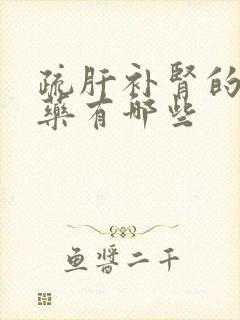 疏肝补肾的
藥有哪些
鱼醬二千